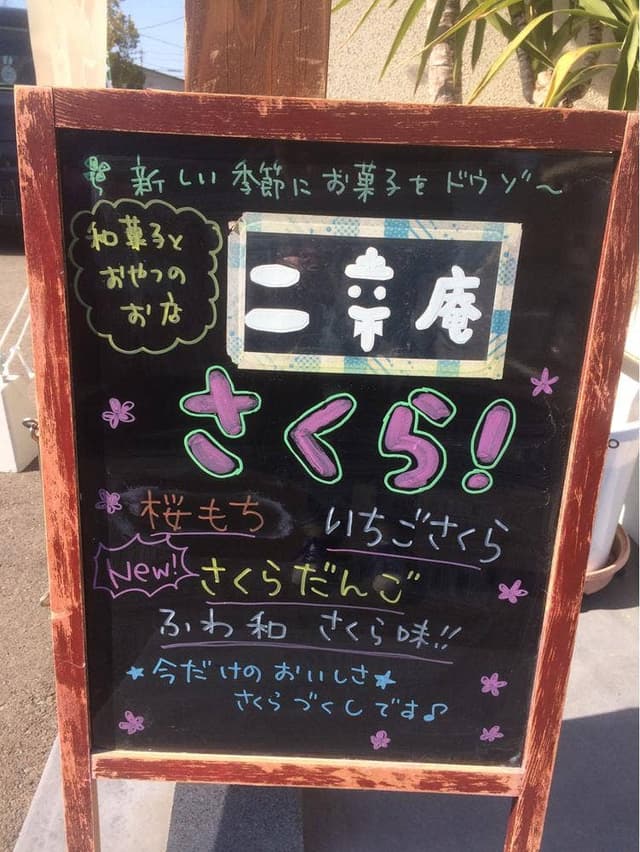 新しい季節にお菓子をドウゾ〜
和菓子と
おやつの
お店
二幸庵
さくら!
桜もち いちごさくら
New! さくらだんご
ふわ和 さくら味!!
★今だけのおいしさ★
さくらづくしです♪